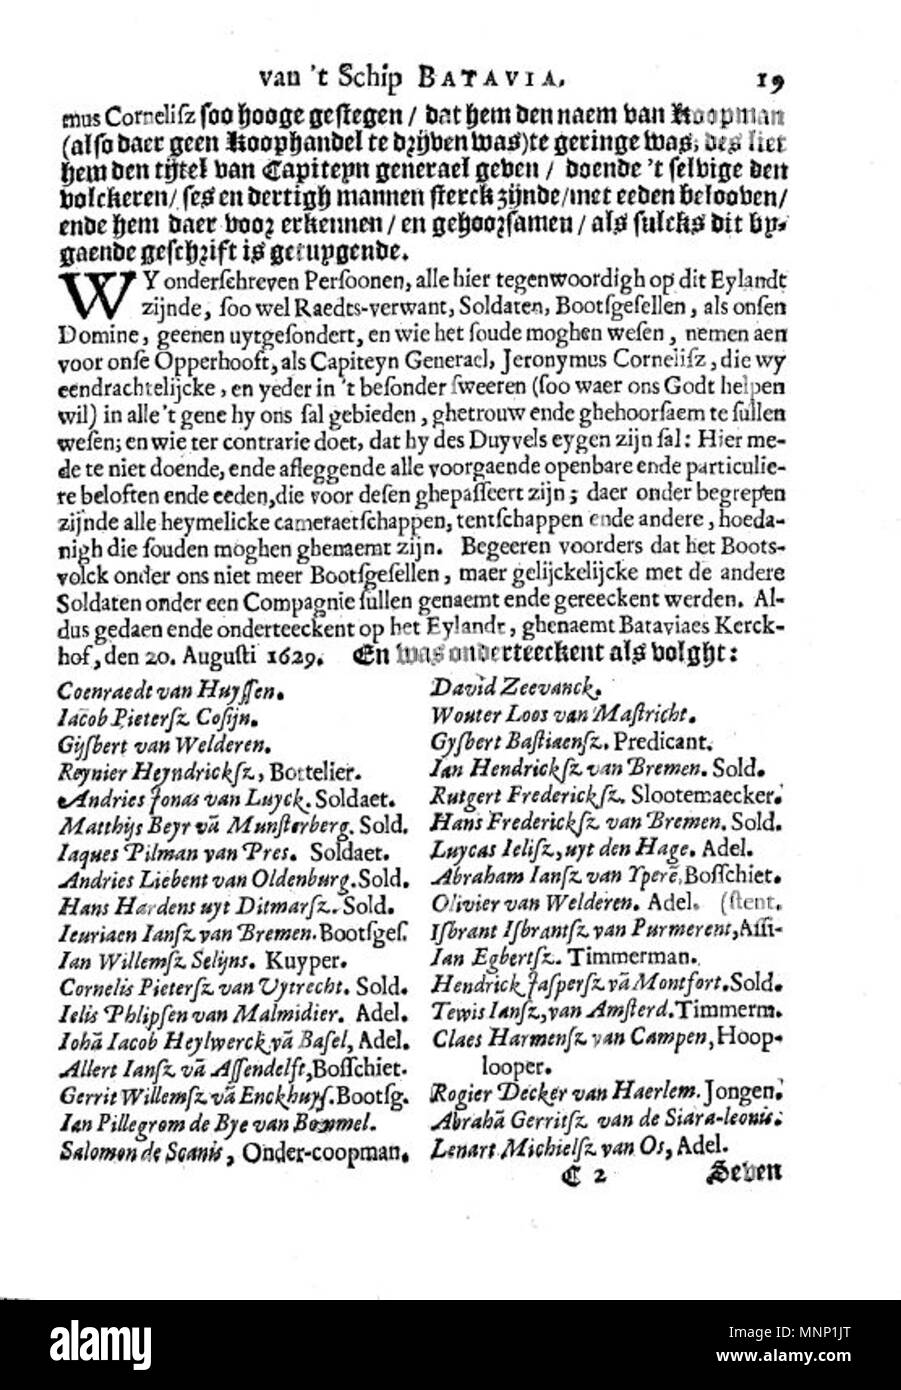 van 't Schip BATAVIA. 19
mus Cornelisz soo hooge gestegen / dat hem den naem van Koopman
(also daer geen Koophandel te drijven was) te geringe was; des liet
hem den tijtel van Capiteyn generael geven / doende 't selvige den
volckeren / ses en dertigh mannen sterck zijnde / met eeden belooven /
ende hem daer voor erkennen / en gehoorsamen / als sulcks dit by-
gaende geschrift is getuygende.
WY onderſchreven Perſoonen, alle hier tegenwoordigh op dit Eylandt
zijnde, ſoo wel Raedts-verwant, Soldaten, Bootſgeſellen, als onſen
Domine, geenen uytgeſondert, en wie het ſoude moghen weſen, nemen aen
voor onſe Opperhooft, als Capiteyn Generael, Jeronymus Corneliſz, die wy
eendrachtelijcke, en yeder in 't beſonder ſweeren (ſoo waer ons Godt helpen
wil) in alle 't gene hy ons ſal gebieden, ghetrouw ende ghehoorſaem te ſullen
weſen; en wie ter contrarie doet, dat hy des Duyvels eygen zijn ſal: Hier me-
de te niet doende, ende afleggende alle voorgaende openbare ende particulie-
re beloften ende eeden, die voor deſen ghepaſſeert zijn; daer onder begrepen
zijnde alle heymelicke cameraetſchappen, tentſchappen ende andere, hoeda-
nigh die ſouden moghen ghenaemt zijn. Begeeren voorders dat het Boots-
volck onder ons niet meer Bootſgeſellen, maer gelijckelijcke met de andere
Soldaten onder een Compagnie ſullen genaemt ende gereeckent werden. Al-
dus gedaen ende onderteeckent op het Eylandt, ghenaemt Bataviaes Kerck-
hof, den 20. Auguſti 1629. En was onderteeckent als volght:
Coenraedt van Huyſſen.
Iacob Pieterſz Coſijn.
Gijſbert van Welderen.
Reynier Heyndrickſz, Bottelier.
Andries Jonas van Luyck. Soldaet.
Matthijs Beyr vā Munſterberg. Sold.
Iaques Pilman van Pres. Soldaet.
Andries Liebent van Oldenburg. Sold.
Hans Hardens uyt Ditmarſz. Sold.
Ieuriaen Ianſz van Bremen. Bootſgeſ.
Ian Willemſz Selijns. Kuyper.
Cornelis Pieterſz van Vytrecht. Sold.
Ielis Phlipſen van Malmidier. Adel.
Iohā Iacob Heylwerck vā Baſel, Adel.
Allert Ianſz vā Aſſendelft, Boſſchiet.
Gerrit Willemſz vā Enckhuyſ. Bootſg.
Ian Pillegrom de Bye van Bommel.
Salomon de Scanis, Onder-coopman.
David Zeevanck.
Wouter Loos van Maſtricht.
Gyſbert Baſtiaenſz. Predicant.
Ian Hendrickſz van Bremen. Sold.
Rutgert Frederickſz. Slootemaecker.
Hans Frederickſz van Bremen. Sold.
Luycas Ieliſz, uyt den Hage. Adel.
Abraham Ianſz van Yperē, Boſſchiet.
Olivier van Welderen. Adel. (ſtent.
Iſbrant Iſbrantſz van Purmerent, Aſſi-
Ian Egbertſz. Timmerman.
Hendrick Jaſperſz vā Montfort. Sold.
Tewis Ianſz, van Amſterd. Timmerm.
Claes Harmenſz van Campen, Hoop-
looper.
Rogier Decker van Haerlem. Jongen.
Abrahā Gerritſz van de Siara-leonis.
Lenart Michielſz van Os, Adel.
C 2 Seven
alamy
Image ID: MNP1JT
www.alamy.com